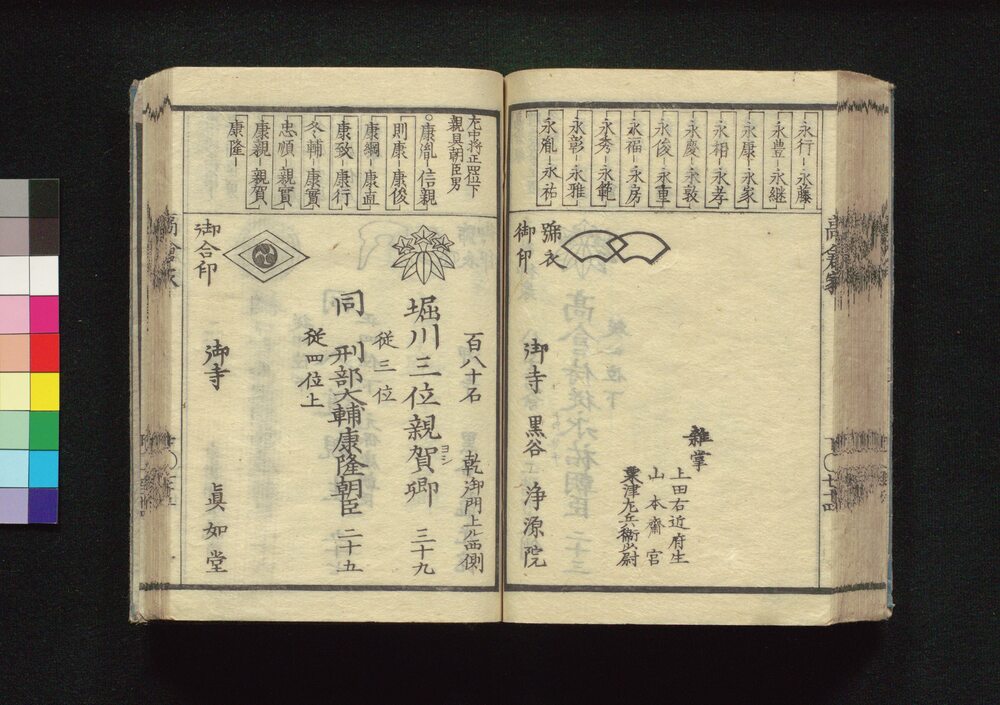 永行─永藤
永豊─永継
永康─永家
永相─永孝
永慶─永敦
永俊─永重
永福─永房
永秀─永範
永彰─永雅
永胤─永祐
雑掌
上田右近府生
山本齋宮
粟津左兵衛少尉
號衣
御印
御寺 黒谷 浄源院
左中将正四位下
親具朝臣男
康胤 信親
則康─康俊
康綱─康直
康致─康行
冬輔─康實
忠順─親實
康親─親賀
康隆─
百八十石 乾御門上ル西側
堀川三位親賀卿 三十九
ヨシ
従三位
同 刑部大輔康隆朝臣 二十五
従四位上
御合印
御寺 眞如堂
高倉家